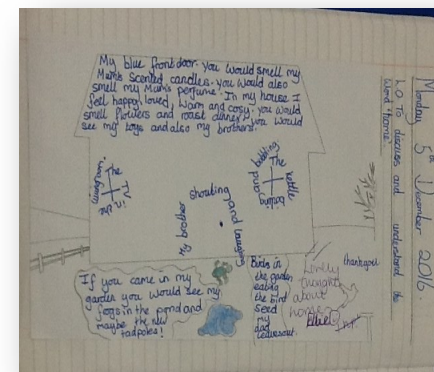 Monday 5th December 2016.
L.O. To discuss and understand the
word 'home'
My blue front door. you would smell my
Mum's scented candles. you would also
smell my Mum's perfume. In my house I
feel happy, loved, warm and cosy. you would
smell flowers and roast dinner. you would
see my toys and also my brothers.
The TV in the
livingroom.
My brother
shouting
and banging
The kettle
boiling
and bubbling
If you came in my
garden you would see my
frogs in the pond and
maybe the new
tadpoles!
Birds in
the garden
eating
the bird
seed
my
dad
leaves out.
Lovely
thoughts
about
home
thankyou!